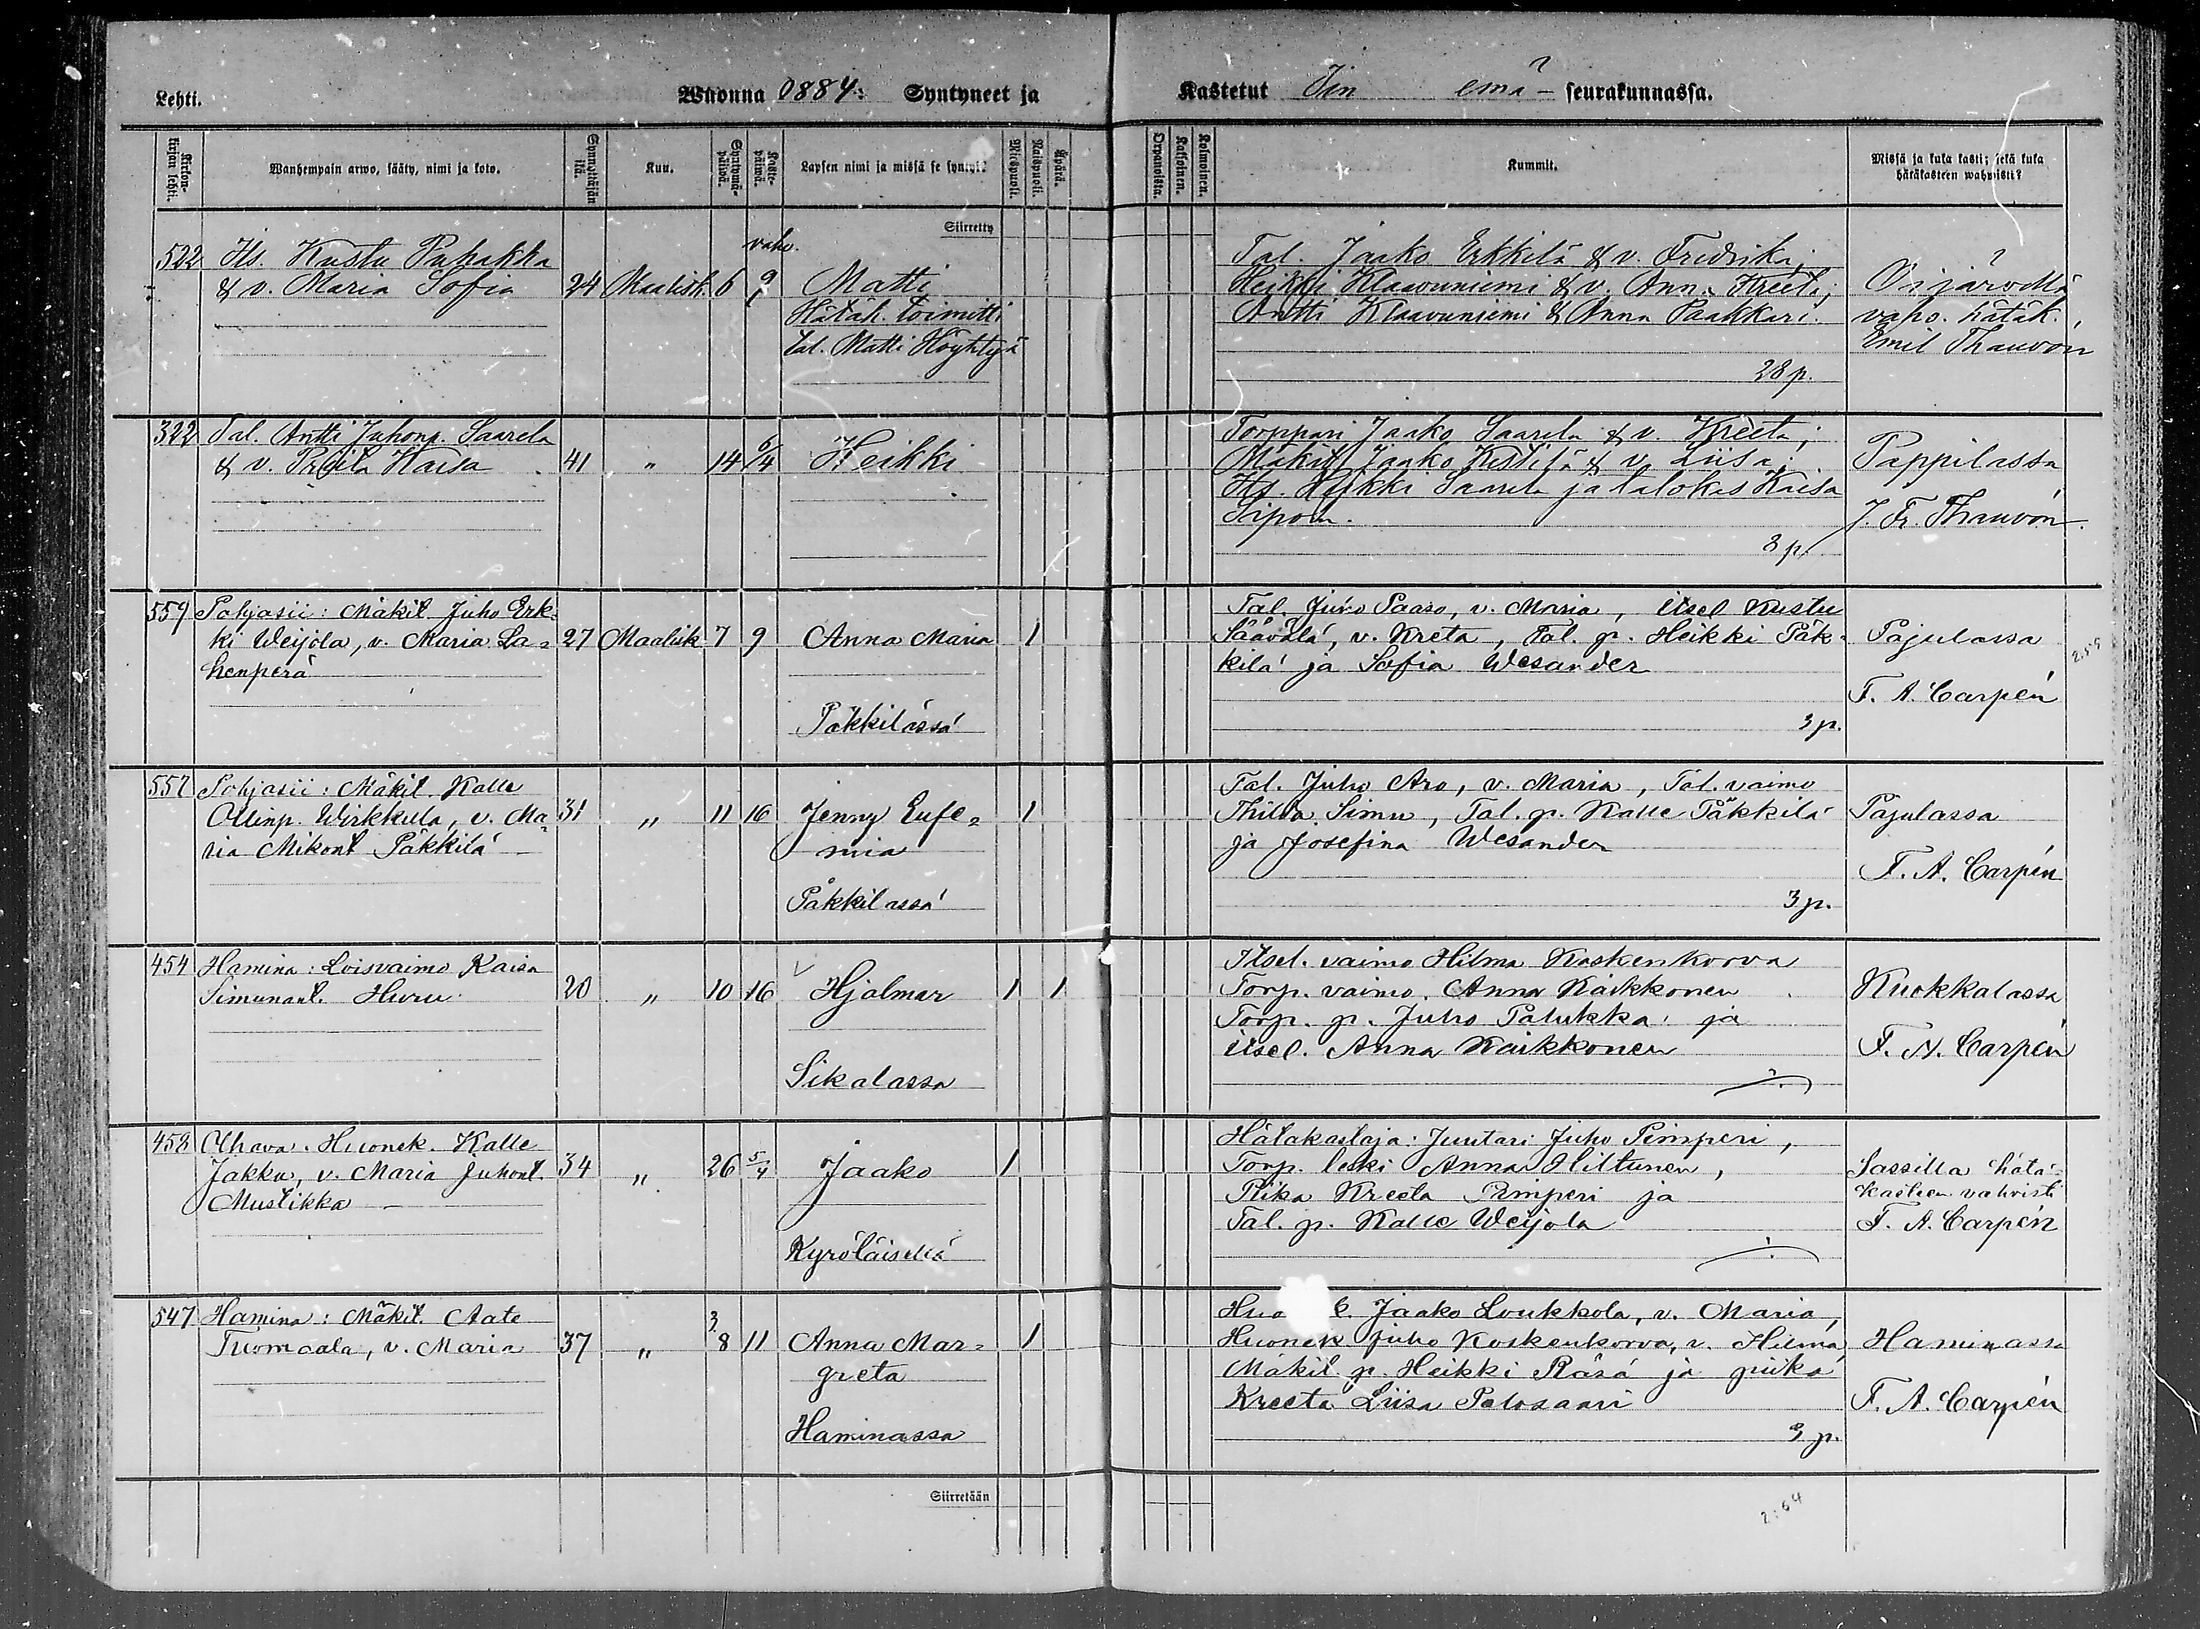 Lehti. Wuonna 0884. Syntyneet ja
Kastetut Iin emä- seurakunnassa.
Kirkonkirjan lehti.
Wanhempain arwo, sääty, nimi ja koto.
Synnyttäjän ikä.
Kuu.
Syntymäpäiwä.
Kastepäiwä.
Lapsen nimi ja missä se syntyi?
Miespuoli.
Naispuoli.
Äpärä.
Orpanoista.
Kaksoinen.
Kolmoinen.
Kummit.
Missä ja kuka kasti; sekä kuka
hätäkasteen wahwisti?
Siirretty
522 Its. Kustu Puhakka
& v. Maria Sofia 24 Maalisk. 6 vahv. 9 Matti
Hätäk. toimitti
tal. Matti Höyhtyä
Tal. Jaako Erkkilä & v. Fredrika;
Heikki Klaavuniemi & v. Anna Kreeta;
Antti Klaavuniemi & Anna Paakkari.
28 p.
Oijärvellä
vahv. hätäk.
Emil Thauvón
322 Tal. Antti Juhonp. Saarela
& v. Kaisa 41 " 14 6/4 Heikki
Torppari Jaako Saarela & v. Kreeta;
Mäkit. Jaako Kestilä & v. Liisa;
Its. Heikki Saarela ja talokas Kaisa
Sipola.
8 p.
Pappilassa
J. Fr. Thauvón.
559 Pohjasii: Mäkit Juho Erk-
ki Weijola, v. Maria La- 27 Maalisk 7 9 Anna Maria 1
henperä
Päkkilässä
Tal. Juho Paaso, v. Maria, itsel Kustu
Säävälä, v. Kreta, Tal. p. Heikki Päk-
kilä ja Sofia Wesander
3 p.
Pajulassa
F. A. Carpén
259
557 Pohjasii: Mäkit. Kalle
Ollinp. Wirkkula, v. Ma- 31 " 11 16 Jenny Eufe- 1
ria Mikont Päkkilä mia
Päkkilässä
Tal. Juho Aro, v. Maria, Tal. vaimo
Thilda Simu, Tal. p. Kalle Päkkilä
ja Josefina Wesander
3 p.
Pajulassa
F. A. Carpén
454 Hamina: Loisvaimo Kaisa
Simunant. Huru 20 " 10 16 Hjalmar 1 1
Sikalassa
Itsel. vaimo Hilma Koskenkorva
Torp. vaimo. Anna Kaikkonen
Torp. p. Juho Palukka ja
itsel. Anna Kaikkonen
Kuokkalassa
F. A. Carpén
458 Olhava. Huonek. Kalle
Jakku, v. Maria Juhont. 34 " 26 5/4 Jaako 1
Mustikka
Kyröläisellä
Hätäkastaja: Juutari Juho Pimperi,
Torp. leski Anna Hiltunen,
Piika Kreeta Pimperi ja
Tal. p. Kalle Weijola
Sassilla hätä-
kasteen vahvisti
F. A. Carpén
547 Hamina: Mäkit. Aate
Tuomaala, v. Maria 37 " 3 8 11 Anna Mar- 1
greta
Haminassa
Huo k. Jaako Loukkola, v. Maria,
Huonek Juho Koskenkorva, v. Hilma,
Mäkit. p. Heikki Räsä ja piika
Kreeta Liisa Palosaari
3 p.
Haminassa
F. A. Carpén
Siirretään